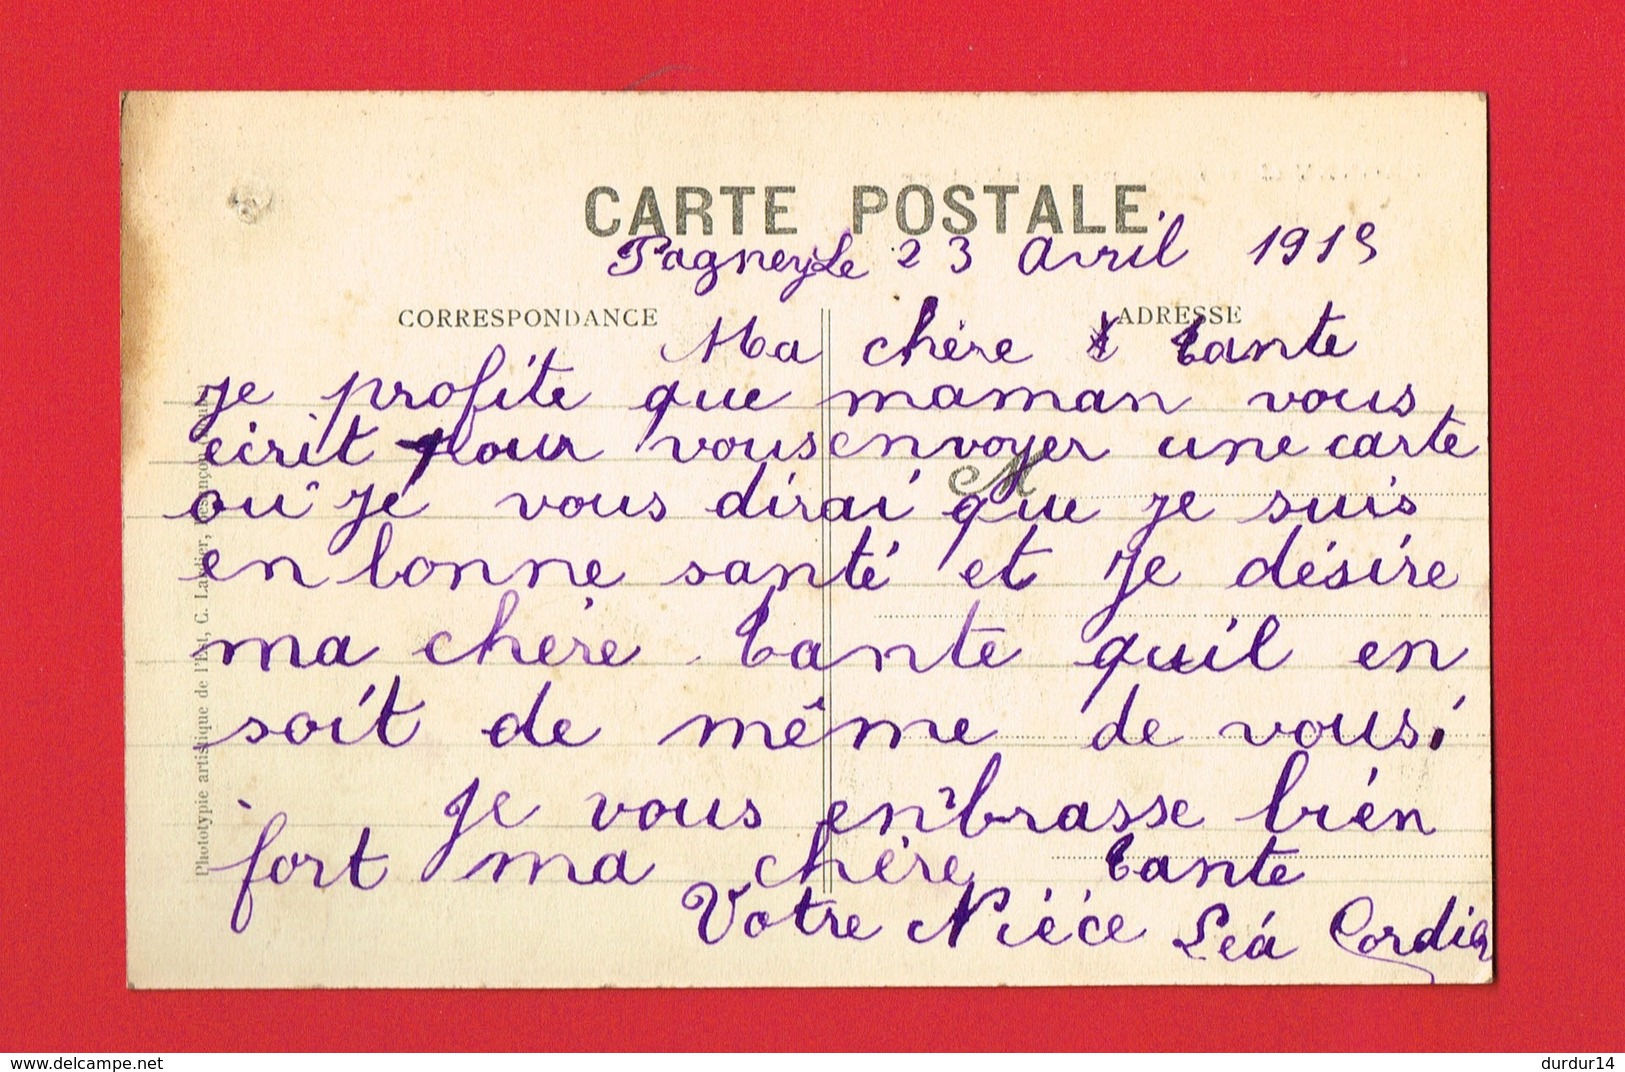 CARTE POSTALE
Pagney le 23 Avril 1915
CORRESPONDANCE
ADRESSE
Ma chère tante
je profite que maman vous
écrit pour vous envoyer une carte
où je vous dirai que je suis
en bonne santé et je désire
ma chère tante quil en
soit de même de vous.
Je vous embrasse bien
fort ma chère tante
Votre Nièce Léa Cordier
Phototypie artistique de l'Est, C. Lardier, Besançon
www.delcampe.net
durdur14